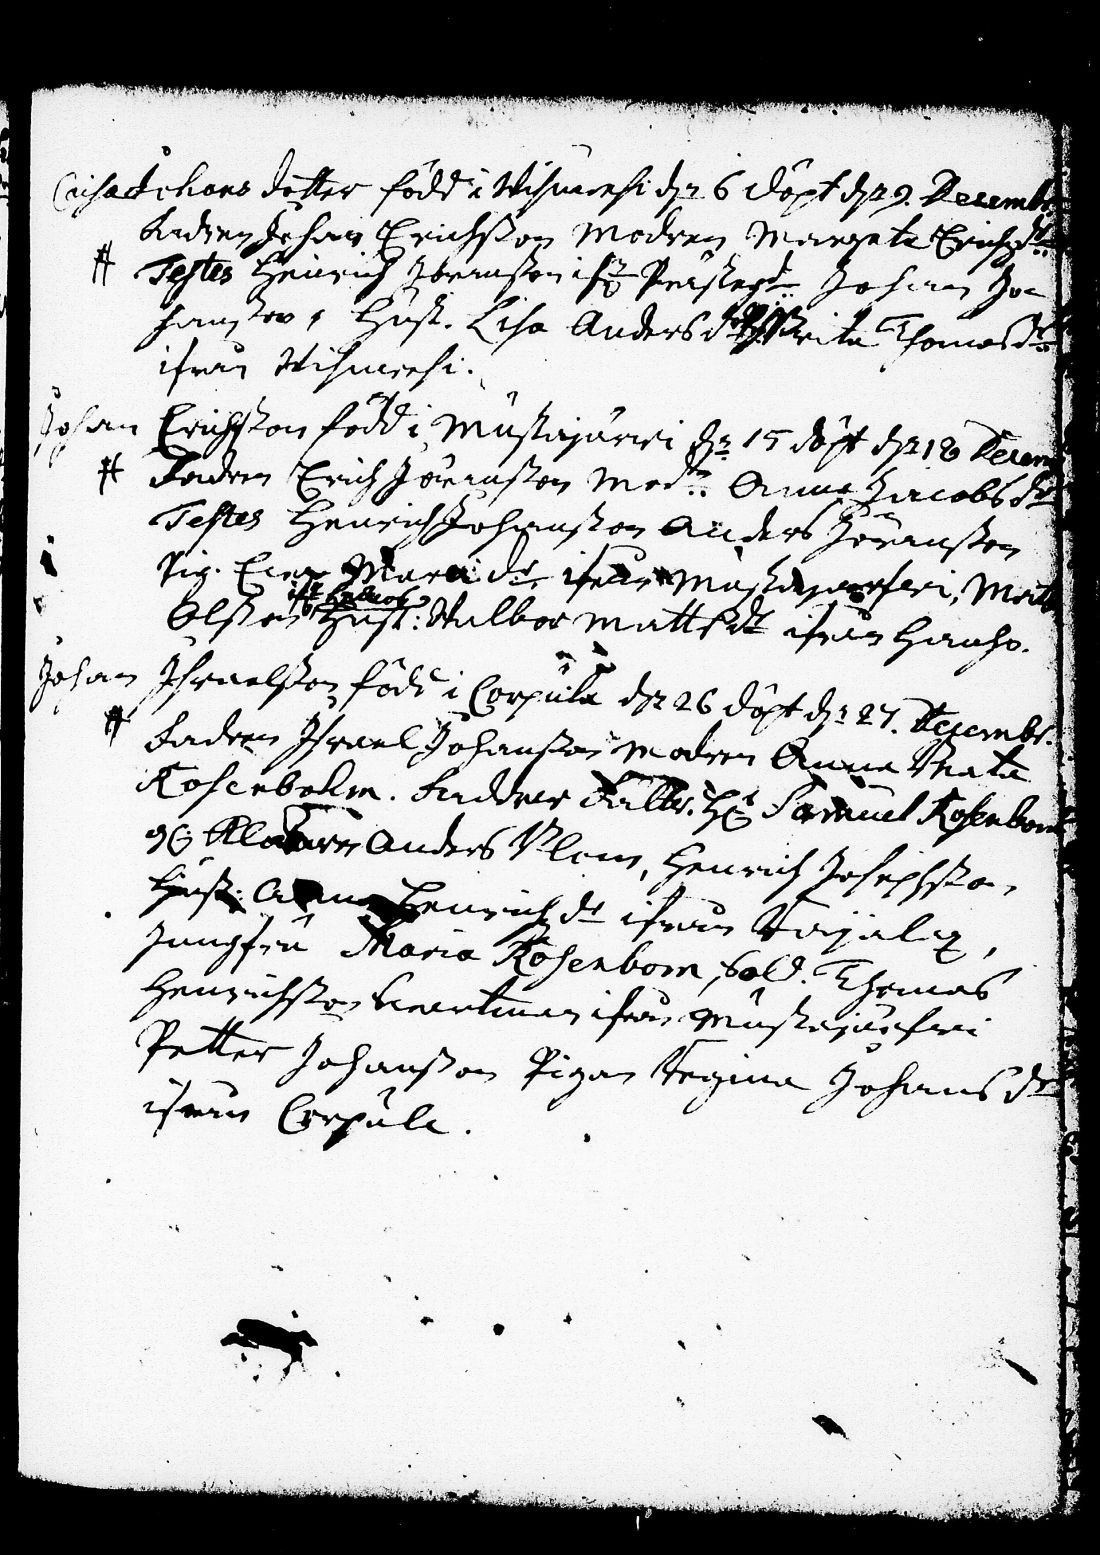 Caisa Johans dotter född i Wihmersi d. 26 döpt d. 29. Decembr
Fadren Johan Erichsson Modren Margeta Erichsdr
# Testes Heinrich Jöransson ifr. Prästegd. Johan Jo
hansson, Hust. Lisa Anders dr Brita Thomasdr
ifrån Wihmersi.
Johan Erichsson född i Mustajärvi d. 15 döpt d. 18 Decem
# Fadren Erich Jöransson Modr. Anna Jacobsdr
Testes Henrich Johansson Anders Jöransson
Pig. Maria dr. ifrån Mustajärfwi, Matts
ifr
Olsson Hust: Walbor Mattsdr ifrån Hanho.
Johan Israelsson född i Corpula d. 26 döpt d. 27. Decembr.
# Fadren Israel Johansson Modren Anna Beata
Rosenbohm. Faddrar Samuel Rosenbom
och Klockaren Anders Blom, Henrich Josephsson,
Hust: Anna Henrichsdr ifrån
Jungfru Maria Rosenbom, Sold. Thomas
Henrichsson ifrån Mustajärfwi
Petter Johansson Pigan Regina Johansdr
ifrån Corpula.